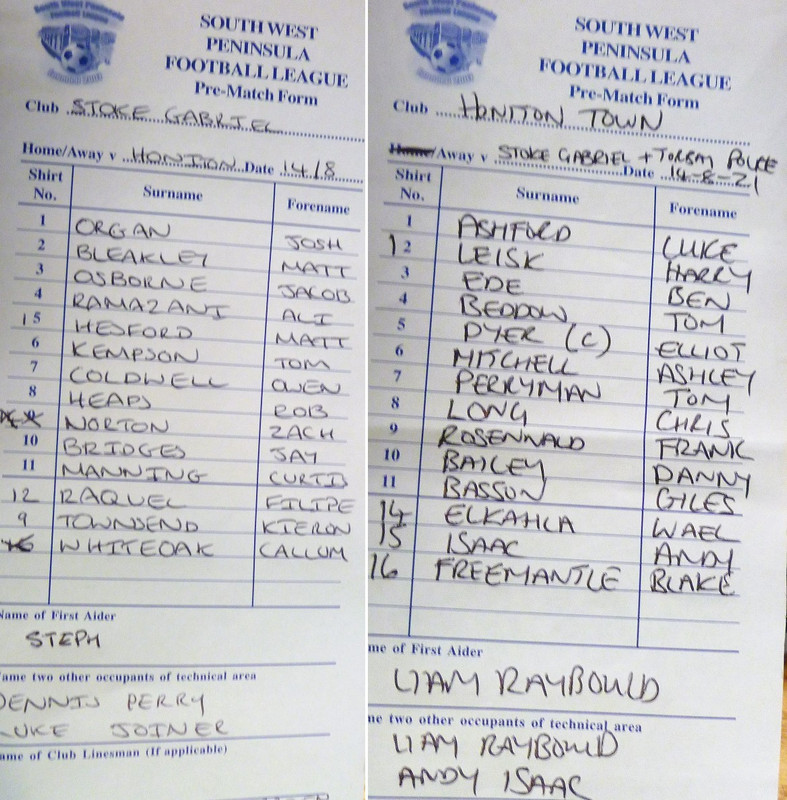 South West Peninsula
Football League
SOUTH WEST
PENINSULA
FOOTBALL LEAGUE
Pre-Match Form
Club STOKE GABRIEL
Home/Away v HONITON Date 14/8
Shirt No. Surname Forename
1 ORGAN JOSH
2 BLEAKLEY MATT
3 OSBORNE JACOB
4 RAMAZANI ALI
15 HESFORD MATT
6 KEMPSON TOM
7 COLDWELL OWEN
8 HEAPS ROB
NORTON ZACH
10 BRIDGES JAY
11 MANNING CURTIS
12 RAQUEL FILIPE
9 TOWNSEND KIERON
WHITEOAK CALLUM
Name of First Aider
STEPH
Name two other occupants of technical area
DENNIS PERRY
LUKE JOINER
Name of Club Linesman (If applicable)
South West Peninsula
Football League
SOUTH WEST
PENINSULA
FOOTBALL LEAGUE
Pre-Match Form
Club HONITON TOWN
Home/Away v STOKE GABRIEL + TORBAY POLICE Date 14-8-21
Shirt No. Surname Forename
1 ASHFORD LUKE
12 LEISK HARRY
3 EDE BEN
4 BEDDOW TOM
5 DYER (C) ELLIOT
6 MITCHELL ASHLEY
7 PERRYMAN TOM
8 LONG CHRIS
9 ROSENWALD FRANK
10 BAILEY DANNY
11 BASSON GILES
14 ELKAHLA WAEL
15 ISAAC ANDY
16 FREEMANTLE BLAKE
me of First Aider
LIAM RAYBOULD
me two other occupants of technical area
LIAM RAYBOULD
ANDY ISAAC